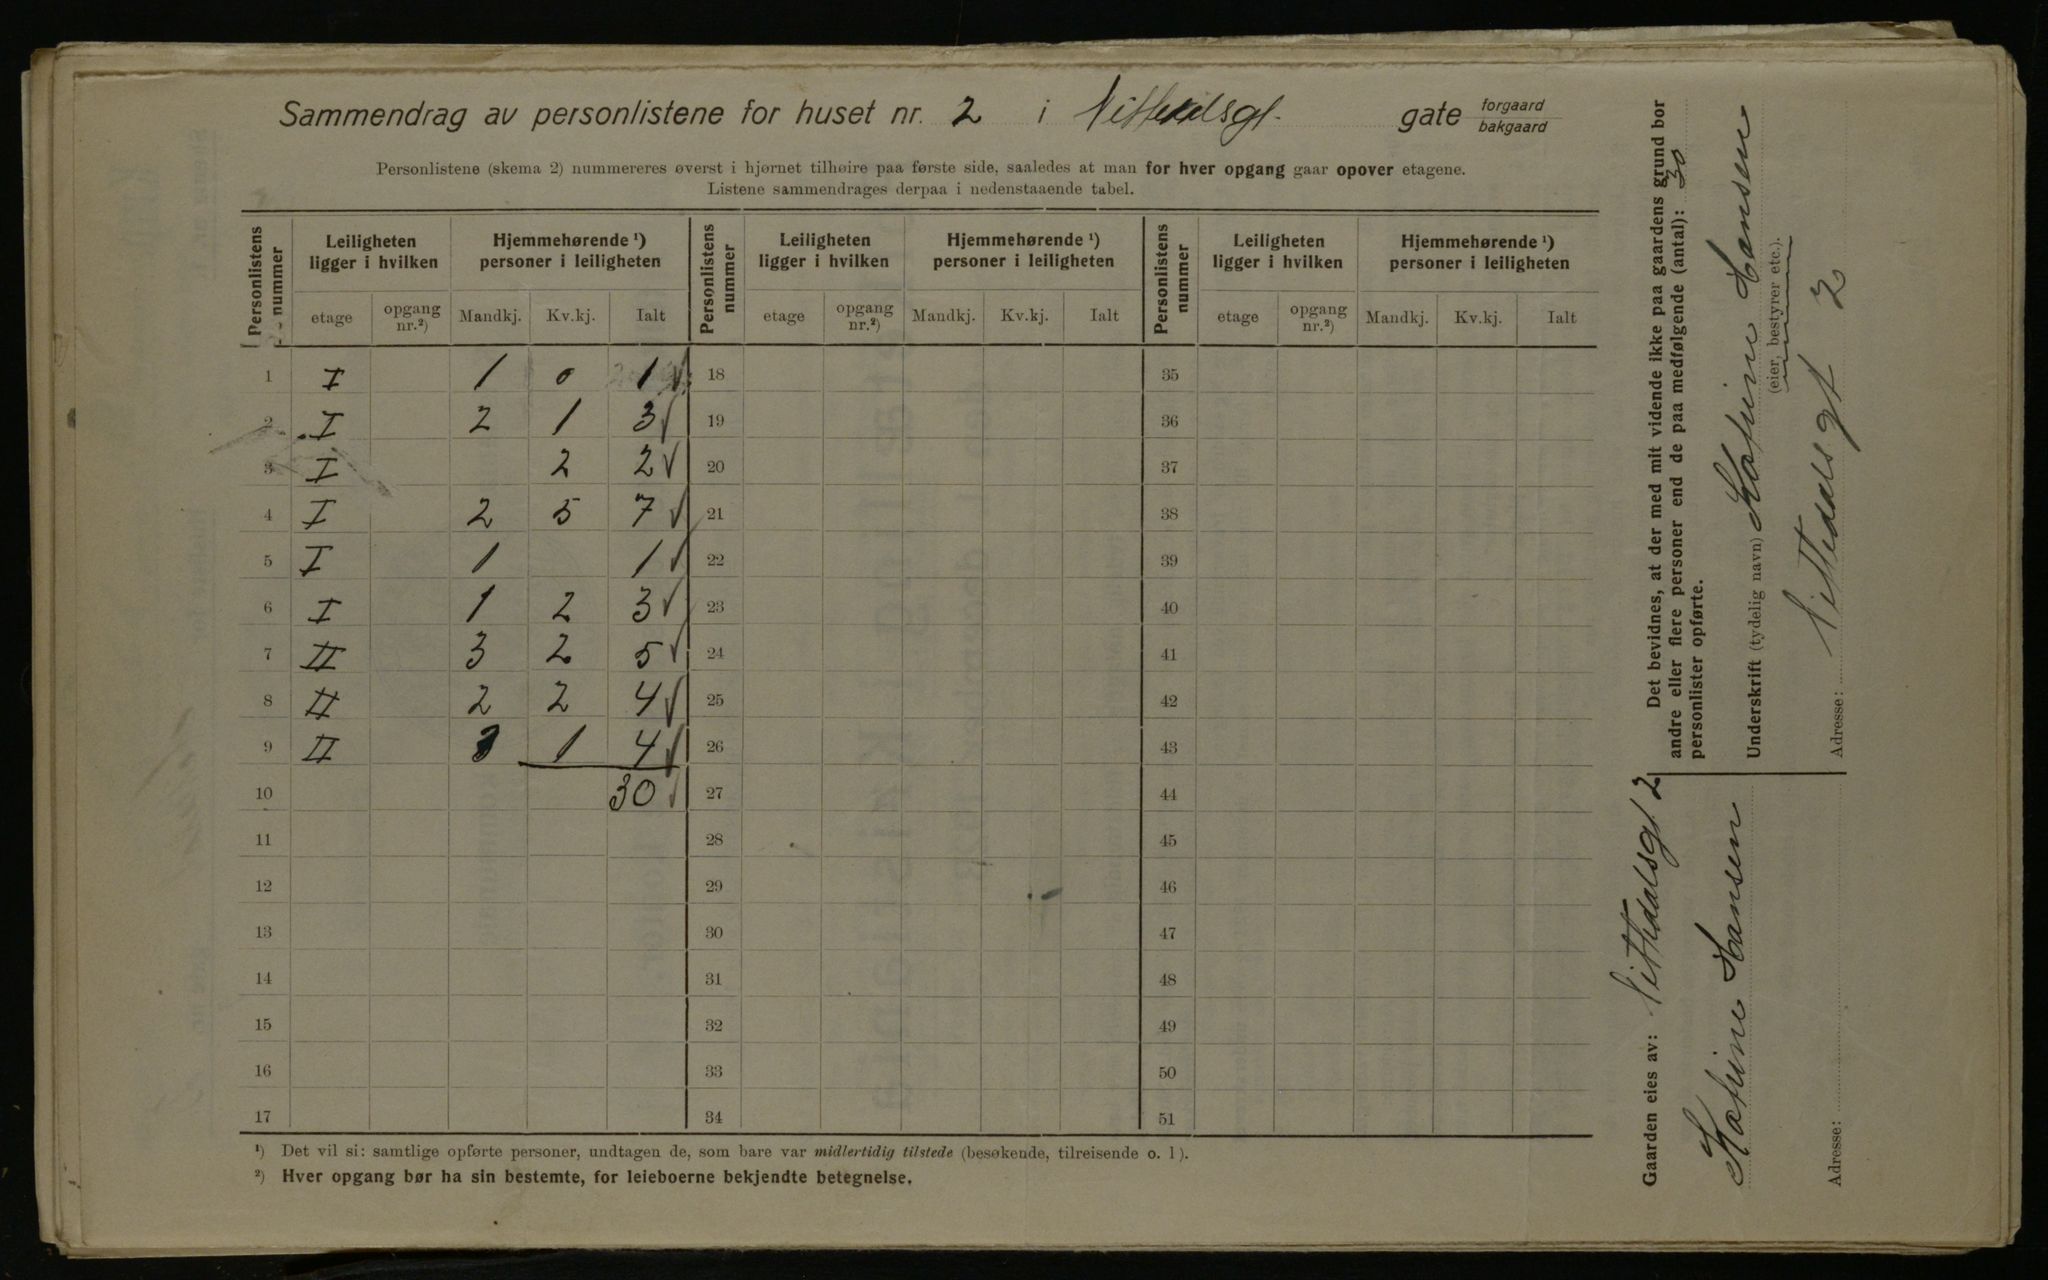 Sammendrag av personlistene for huset nr. 2 i Nittedalsgt. gate forgaard bakgaard
Personlistene (skema 2) nummereres øverst i hjørnet tilhøire paa første side, saaledes at man for hver opgang gaar opover etagene.
Listene sammendrages derpaa i nedenstaaende tabel.
Personlistens nummer Leiligheten ligger i hvilken Hjemmehørende ¹) personer i leiligheten Personlistens nummer Leiligheten ligger i hvilken Hjemmehørende ¹) personer i leiligheten Personlistens nummer Leiligheten ligger i hvilken Hjemmehørende ¹) personer i leiligheten
etage opgang nr.²) Mandkj. Kv.kj. Ialt etage opgang nr.²) Mandkj. Kv.kj. Ialt etage opgang nr.²) Mandkj. Kv.kj. Ialt
1 I 1 0 1 ✓ 18 35
2 I 2 1 3 ✓ 19 36
3 I 2 2 ✓ 20 37
4 I 2 5 7 ✓ 21 38
5 I 1 1 ✓ 22 39
6 I 1 2 3 ✓ 23 40
7 II 3 2 5 ✓ 24 41
8 II 2 2 4 ✓ 25 42
9 II 3 1 4 ✓ 26 43
10 30 ✓ 27 44
11 28 45
12 29 46
13 30 47
14 31 48
15 32 49
16 33 50
17 34 51
¹) Det vil si: samtlige opførte personer, undtagen de, som bare var midlertidig tilstede (besøkende, tilreisende o. l).
²) Hver opgang bør ha sin bestemte, for leieboerne bekjendte betegnelse.
Det bevidnes, at der med mit vidende ikke paa gaardens grund bor
andre eller flere personer end de paa medfølgende (antal): 30
personlister opførte.
Underskrift (tydelig navn) Hansen
(eier, bestyrer etc.).
Adresse: Nittedalsgt 2
Gaarden eies av: Nittedalsgt 2
Hansen
Adresse: